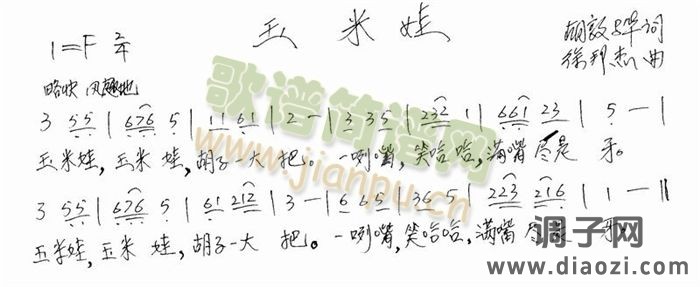 玉米娃
1=F 2/4
胡敦骅词
徐邦杰曲
略快 风趣地
3 55 | 676 5 | 11 61 | 2 — | 3 35 | 232 1 | 661 23 | 5 — |
玉米娃,玉米娃,胡子一大把。一咧嘴,笑哈哈,满嘴尽是牙。
3 55 | 676 5 | 61 212 | 3 — | 6 65 | 36 5 | 223 216 | 1 — ||
玉米娃,玉米娃,胡子一大把。一咧嘴,笑哈哈,满嘴尽是牙。
歌谱简谱网
www.jianpu.cn
调子网
www.diaozi.com